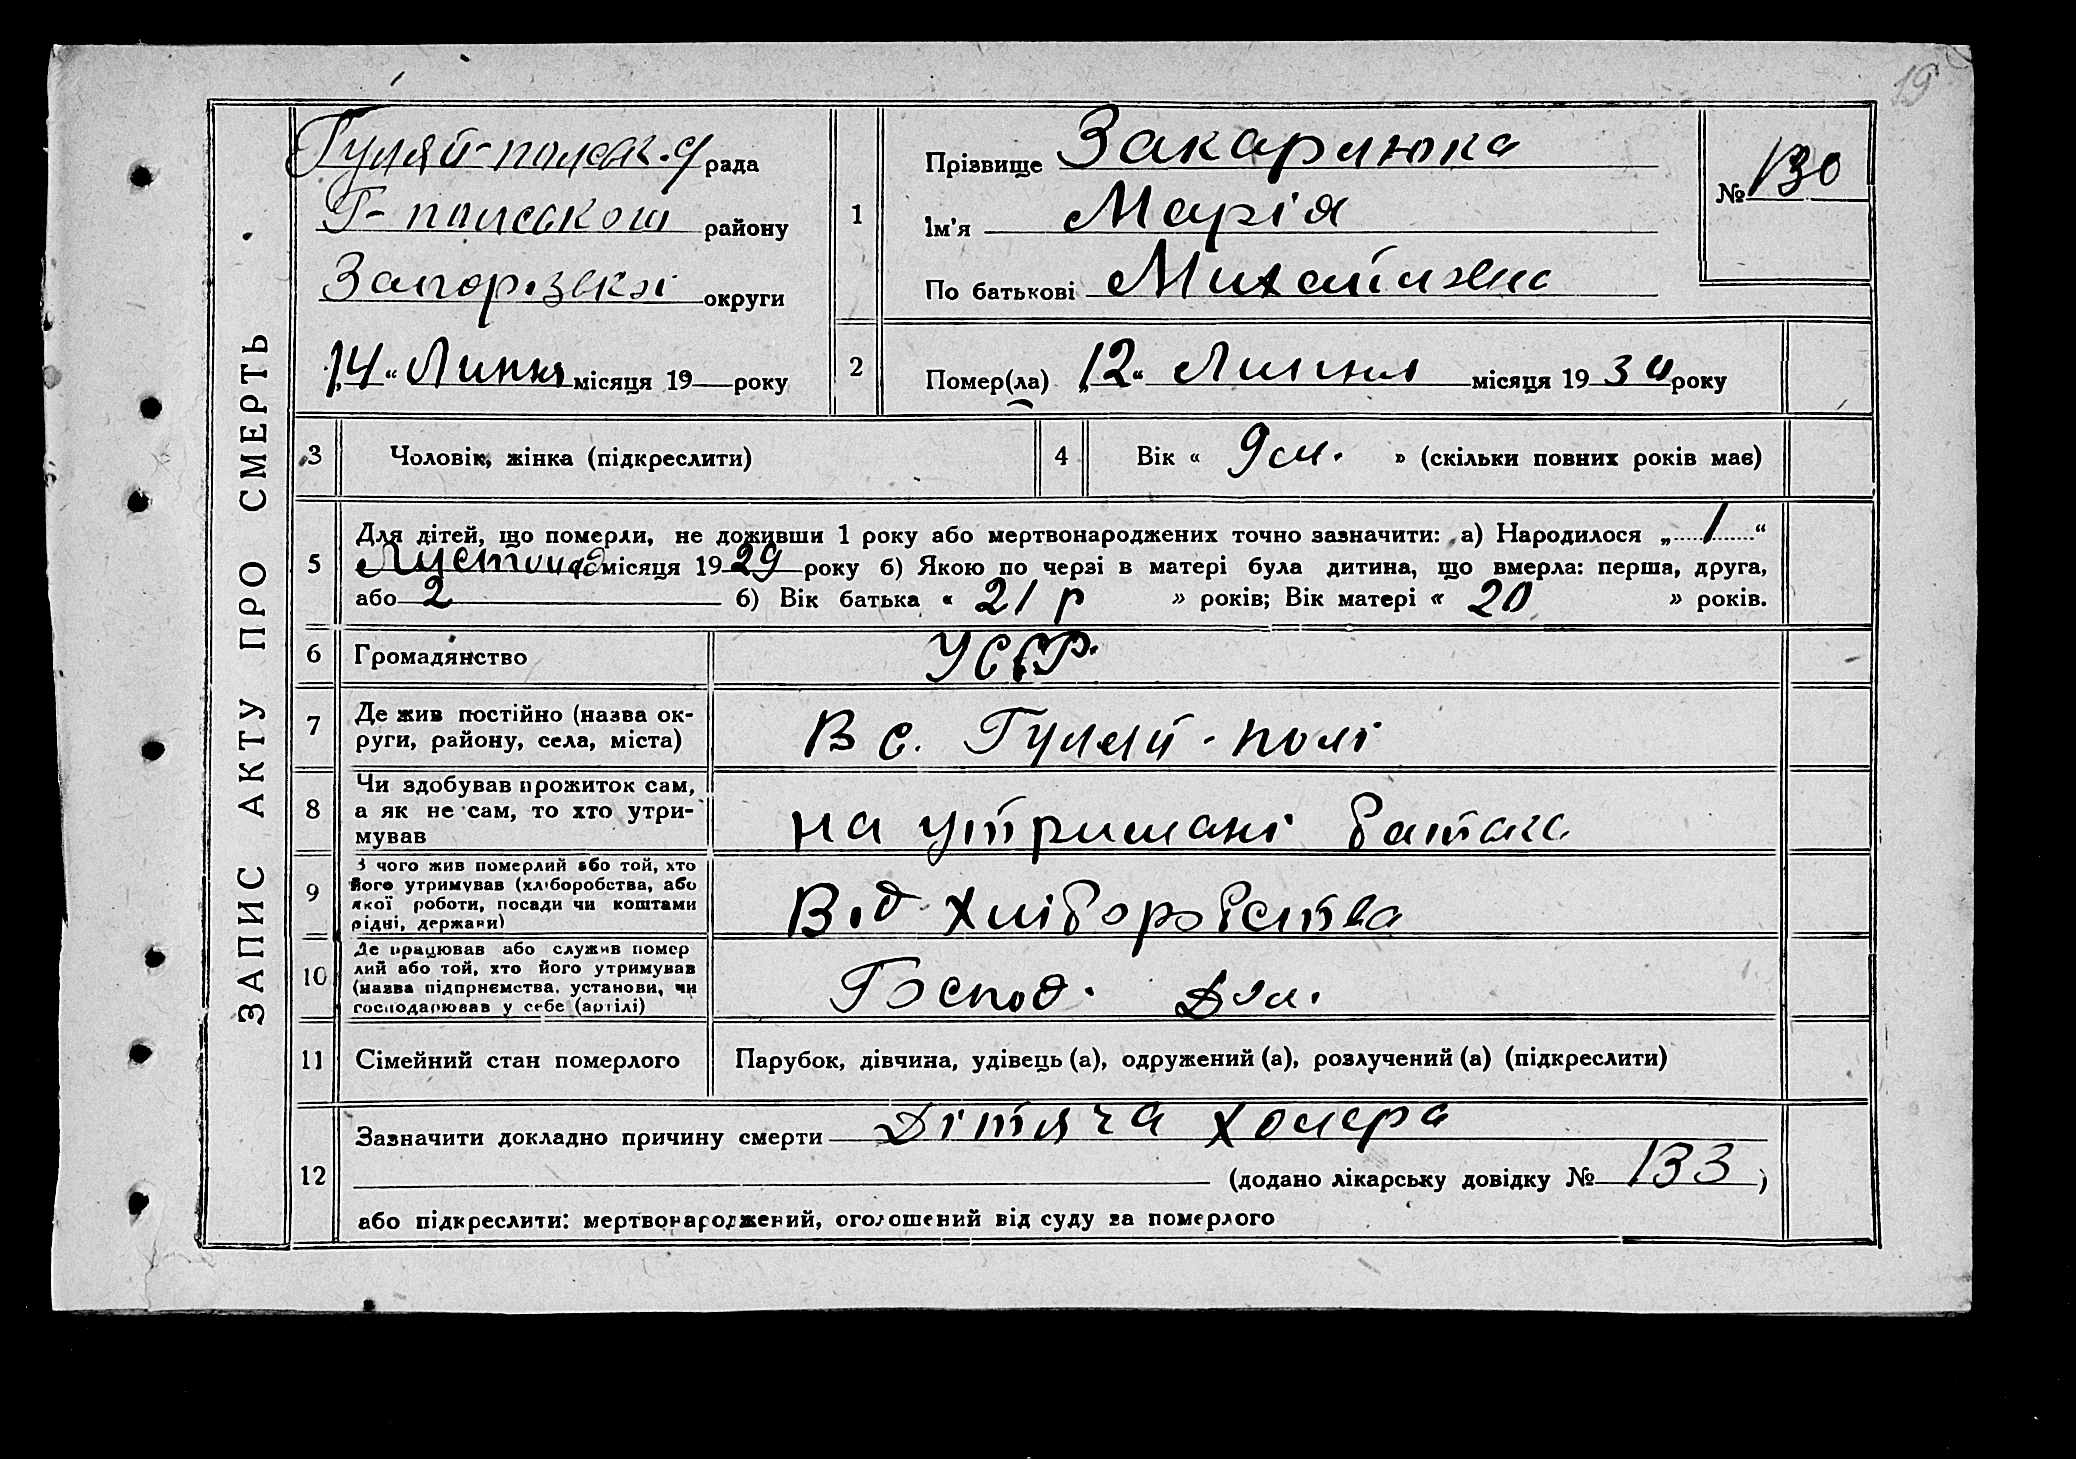 19
ЗАПИС АКТУ ПРО СМЕРТЬ
Гуляй-польськ. рада
Г-польськом району
Запорізькі округи
„14“ Липня місяця 19 року
1
Прізвище Закарлюка
Ім'я Марія
По батькові Михайловна
№ 130
2
Помер(ла) „12“ Липня місяця 1930 року
3 Чоловік, жінка (підкреслити)
4 Вік « 9 м. » (скільки повних років має)
5
Для дітей, що померли, не доживши 1 року або мертвонароджених точно зазначити: а) Народилося „ 1 “
місяця 1929 року б) Якою по черзі в матері була дитина, що вмерла: перша, друга,
або 2 б) Вік батька « 21 р » років; Вік матері « 20 » років.
6 Громадянство УССР.
7
Де жив постійно (назва ок-
руги, району, села, міста)
В с. Гуляй-полі
8
Чи здобував прожиток сам,
а як не сам, то хто утри-
мував
на утримані батька
9
З чого жив померлий або той, хто
його утримував (хліборобства, або
якої роботи, посади чи коштами
рідні, держави)
Від хліборобства
10
Де працював або служив помер
лий або той, хто його утримував
(назва підприємства, установи, чи
господарював у себе (артілі)
Господ. Дом.
11 Сімейний стан померлого
Парубок, дівчина, удівець (а), одружений (а), розлучений (а) (підкреслити)
12
Зазначити докладно причину смерти Дітяча холера
(додано лікарську довідку № 133)
або підкреслити: мертвонароджений, оголошений від суду за померлого